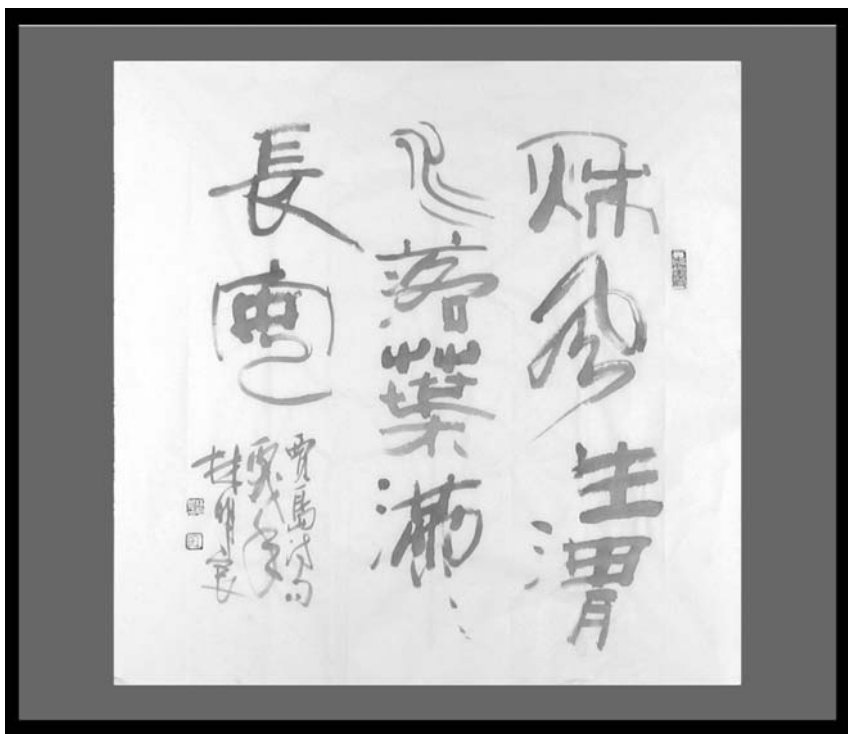 秋风生渭
水落葉滿
長安
賈島诗句